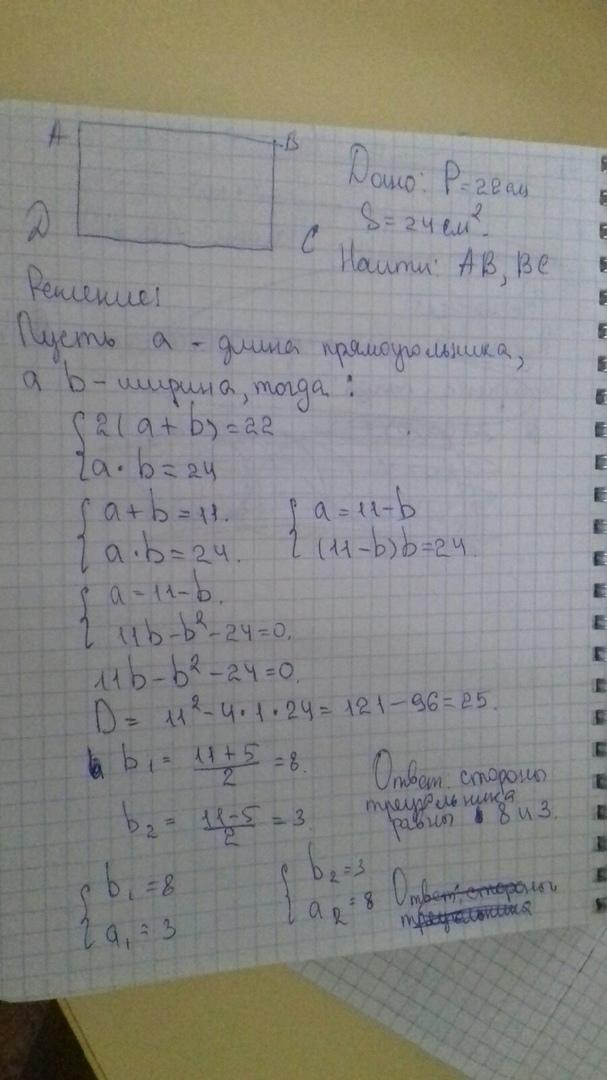 A
B
Д
C
Дано: P=22см
S=24см².
Найти: AB, BC
Решение:
Пусть a - длина прямоугольника,
а b - ширина, тогда:
2(a+b)=22
a·b=24
a+b=11.
a·b=24.
a=11-b
(11-b)b=24.
a=11-b.
11b-b²-24=0.
11b-b²-24=0.
D= 11²-4·1·24=121-96=25.
b₁= (11+5)/2 =8.
b₂= (11-5)/2 =3.
Ответ. стороны
треугольника
равны 8 и 3.
b₁=8
a₁=3
b₂=3
a₂=8
Ответ: стороны
треугольника